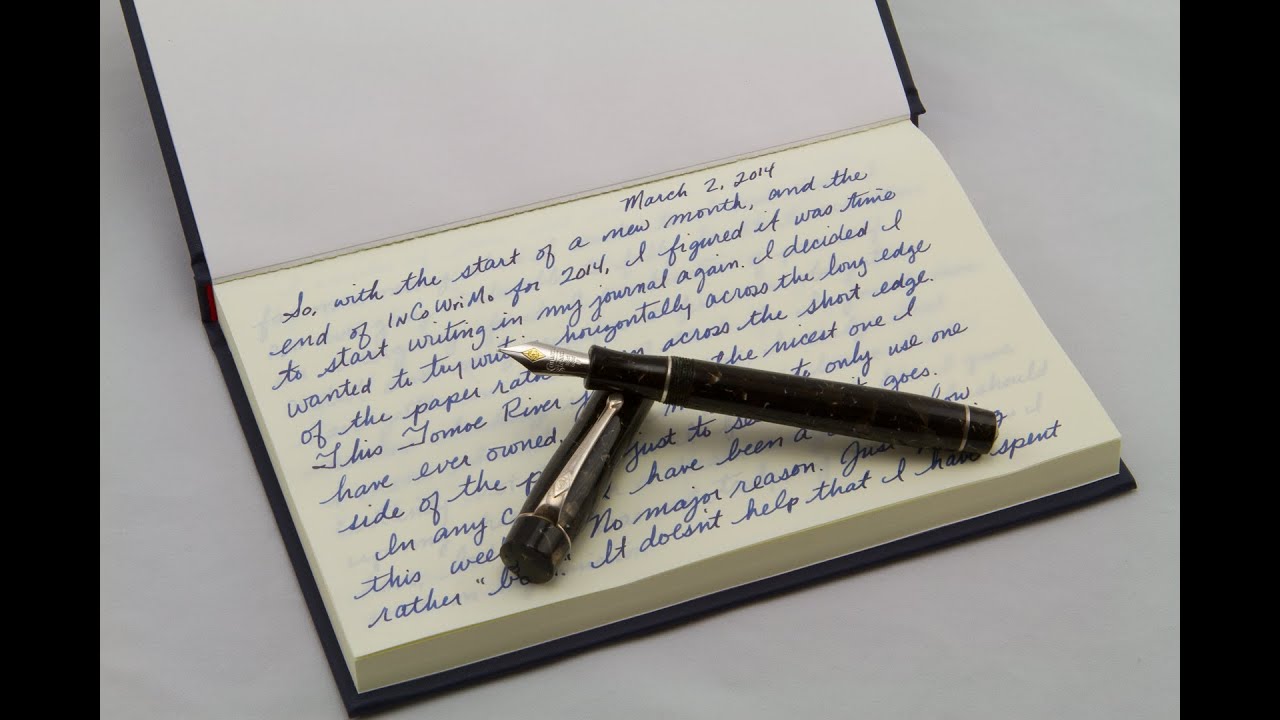 March 2, 2014
So, with the start of a new month, and the
end of INCoWriMo for 2014, I figured it was time
to start writing in my journal again. I decided I
wanted to try horizontally across the long edge
of the paper across the short edge.
This Tomoe River the nicest one I
have ever owned. to only use one
side of the just to goes.
In any have been a
this No major reason. Just
rather It doesn't help that I have spent